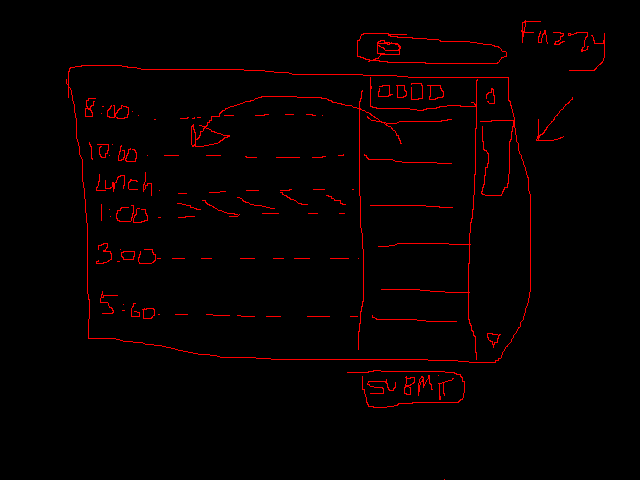 Fuzzy
8:00
10:00
Lunch
1:00
3:00
5:00
SUBMIT